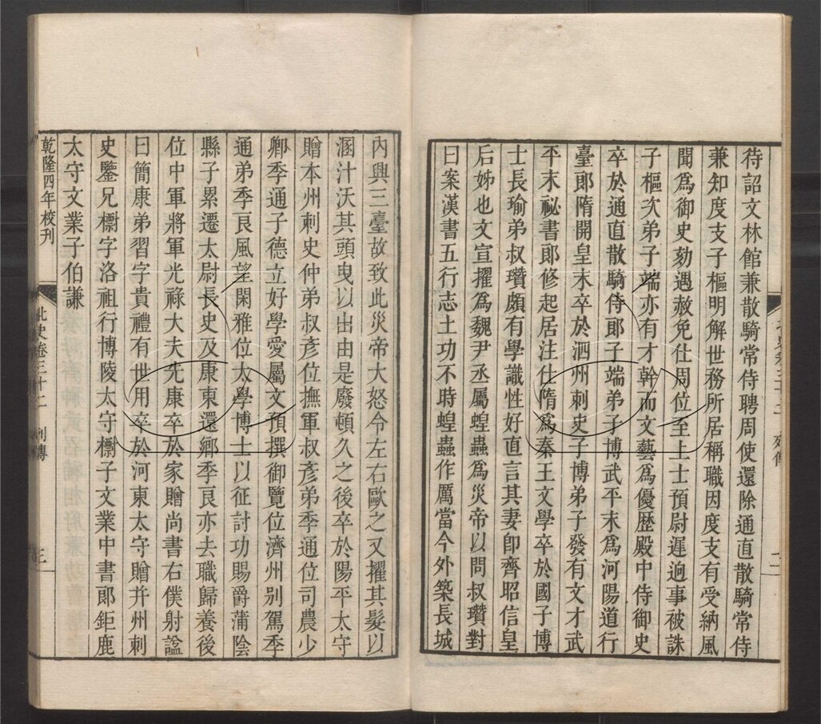 待詔文林館兼散騎常侍聘周使還除通直散騎常侍
兼知度支子樞明解世務所居稱職因度支有受納風
聞為御史劾遇赦免仕周位至上士預尉遲迥事被誅
子樞次弟子端亦有才幹而文藝為優歷殿中侍御史
卒於通直散騎侍郎子端弟子博武平末為河陽道行
臺郎隋開皇末卒於泗州刺史子博弟子發有文才武
平末祕書郎修起居注仕隋為秦王文學卒於國子博
士長瑜弟叔瓚頗有學識性好直言其妻卽齊昭信皇
后姊也文宣擢為魏尹丞屬蝗蟲為災帝以問叔瓚對
曰案漢書五行志土功不時蝗蟲作厲當今外築長城
內興三臺故致此災帝大怒令左右歐之又擢其髮以
溷汁沃其頭曳以出由是廢頓久之後卒於陽平太守
贈本州刺史仲弟叔彥位撫軍叔彥弟季通位司農少
卿季通子德立好學愛屬文預撰御覽位濟州別駕季
通弟季良風望閑雅位太學博士以征討功賜爵蒲陰
縣子累遷太尉長史及康東還鄉季良亦去職歸養後
位中軍將軍光祿大夫先康卒於家贈尚書右僕射諡
曰簡康弟習字貴禮有世用卒於河東太守贈并州刺
史鑒兄櫚字洛祖行博陵太守櫚子文業中書郎鉅鹿
太守文業子伯謙
乾隆四年校刊
北史卷三十二
列傳
三